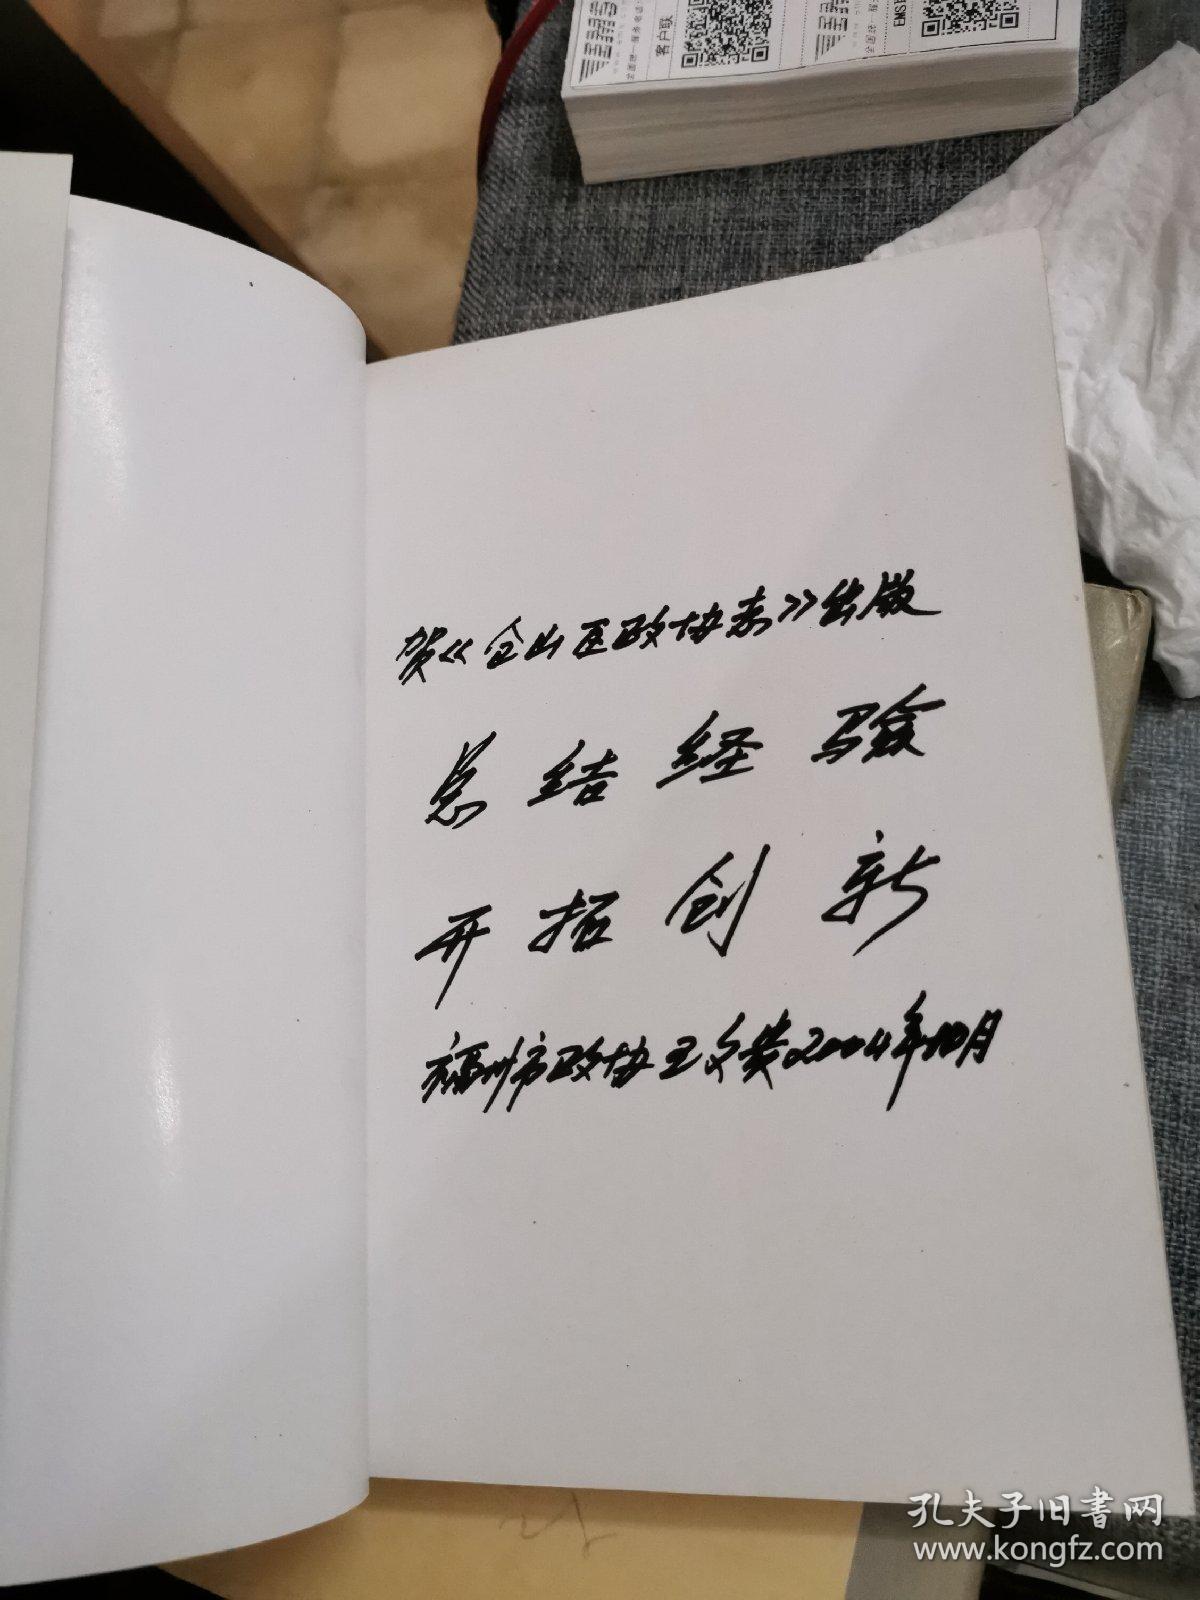 客户联
贺《仓山区政协志》出版
总结经验
开拓创新
福州市政协王文贵2004年10月
孔夫子旧书网
www.kongfz.com